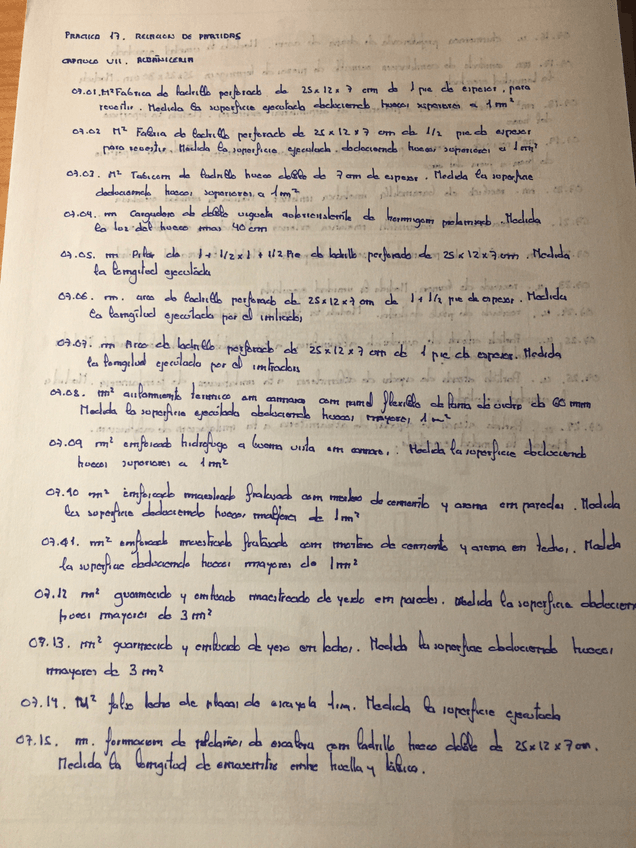 PRACTICA 17. RELACION DE PARTIDAS
CAPITULO VII. ALBAÑILERIA
07.01. M² Fabrica de ladrillo perforado de 25x12x7 cm de 1 pie de espesor, para
revestir. Medida la superficie ejecutada deduciendo huecos superiores a 1m²
07.02 M² Fabrica de ladrillo perforado de 25x12x7 cm de 1/2 pie de espesor
para revestir. Medida la superficie ejecutada deduciendo huecos superiores a 1m²
07.03. M² Tabicon de ladrillo hueco doble de 7cm de espesor. Medida la superficie
deduciendo huecos superiores a 1m²
07.04. m Cargadero de doble vigueta autorresistente de hormigon pretensado. Medida
la luz del hueco mas 40cm
07.05. m Pilar de 1+1/2x1+1/2 Pie de ladrillo perforado de 25x12x7cm. Medida
la longitud ejecutada
07.06. m. arco de ladrillo perforado de 25x12x7cm de 1+1/2 pie de espesor. Medida
la longitud ejecutada por el intrados
07.07. m Arco de ladrillo perforado de 25x12x7 cm de 1 pie de espesor. Medida
la longitud ejecutada por el intrados
07.08. m² aislamiento termico en camara con panel flexible de fibra de vidrio de 60 mm
Medida la superficie ejecutada deduciendo huecos mayores 1m²
07.09 m² enfoscado hidrofugo a buena vista en camaras. Medida la superficie deduciendo
huecos superiores a 1m²
07.10 m² enfoscado maestreado fratasado con mortero de cemento y arena en paredes. Medida
la superficie deduciendo huecos mayores de 1m²
07.11. m² enfoscado maestreado fratasado con mortero de cemento y arena en techos. Medida
la superficie deduciendo huecos mayores de 1m²
07.12 m² guarnecido y enlucido maestreado de yeso en paredes. Medida la superficie deduciendo
huecos mayores de 3m²
07.13. m² guarnecido y enlucido de yeso en techos. Medida la superficie deduciendo huecos
mayores de 3m²
07.14. M² falso techo de placas de escayola lisa. Medida la superficie ejecutada
07.15. m. formacion de peldaños de escalera con ladrillo hueco doble de 25x12x7cm.
Medida la longitud de entre huella y tabica.